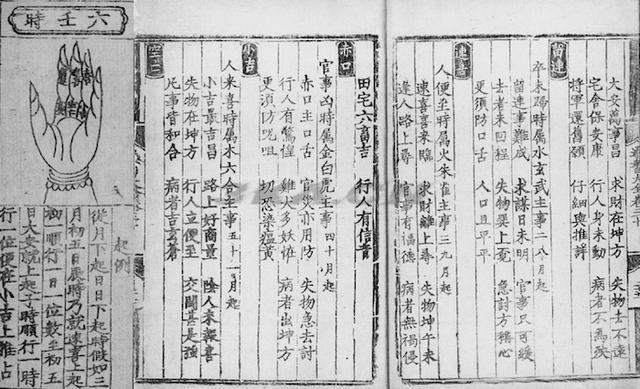 留連
大安萬事昌 求財在坤方 失物去不遠
宅舍保安康 行人身未動 病者不為殃
將軍還舊願 仔細與推詳
卒未歸時屬水玄武主事二八月起
留連事難成 求謀日未明 官事只可緩
去者未回程 失物巽上覓 急討方稱心
更須防口舌 人口且平平
速喜
人便至時屬火朱雀主事三九月起
速喜喜來臨 求財離上尋 失物坤午未
逢人路上尋 官事有福德 病者無禍侵
田宅六畜吉 行人有信音
赤口
官事凶時屬金白虎主事四十月起
赤口主口舌 官災亦用防 失物急去討
行人有驚惶 雞犬多妖怪 病者出坤方
更須防咒咀 切恐染瘟黄
小吉
人来喜時屬木六合主事五十一月起
小吉最吉昌 路上好商量 陰人来報喜
失物在坤方 行人立便至 交關甚是強
凡事皆和合 病者吉
空亡
六壬時
起例
從月下起日日下起時假如三
月初五日辰時乃就速喜上起
初 順行一日一位數至初五
日大安就上起子時順行一時
行一位便在小吉上推占